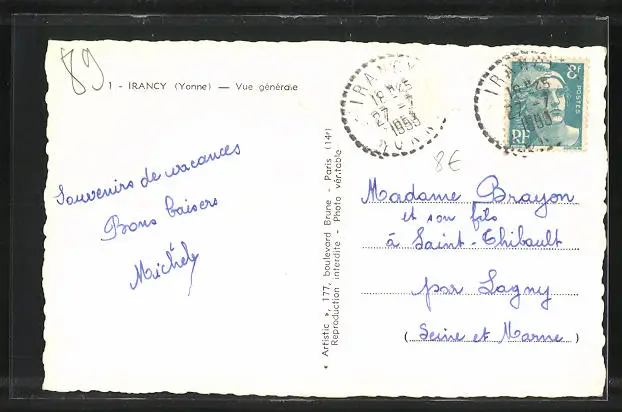 89
1 - IRANCY (Yonne) — Vue générale
IRANCY
18H25
27-7
1953
YONNE
IRANCY
8F
POSTES
RF
8€
Souvenirs de vacances
Bons baisers
Michel
Madame Brayon
et son fils
à Saint-Thibault
par Lagny
(Seine et Marne)
« Artistic », 177, boulevard Brune - Paris (14e)
Reproduction interdite - Photo véritable